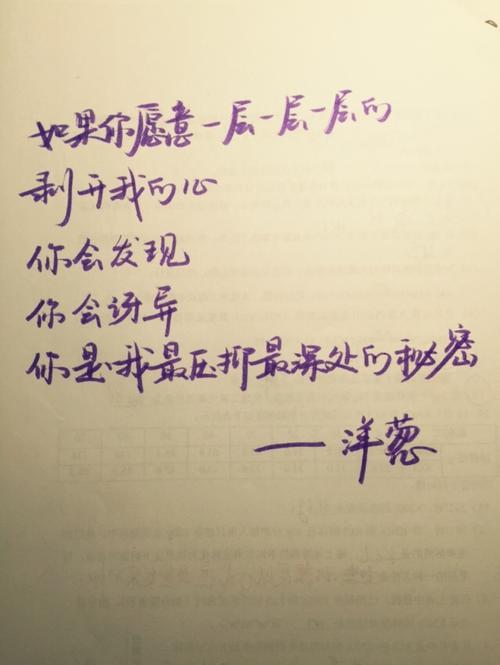 如果你愿意一层一层一层的
剥开我的心
你会发现
你会讶异
你是我最压抑最深处的秘密
——洋葱